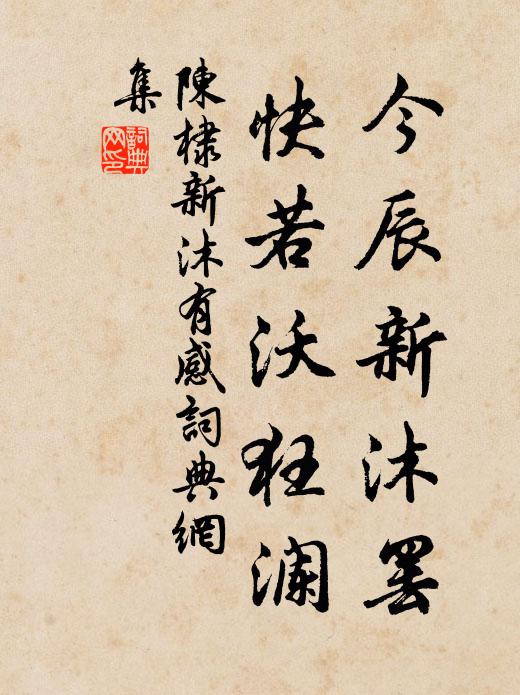 今辰新沐罢
快若沃狂澜
陳棣新沐有感詞典網
集
詞典
网印